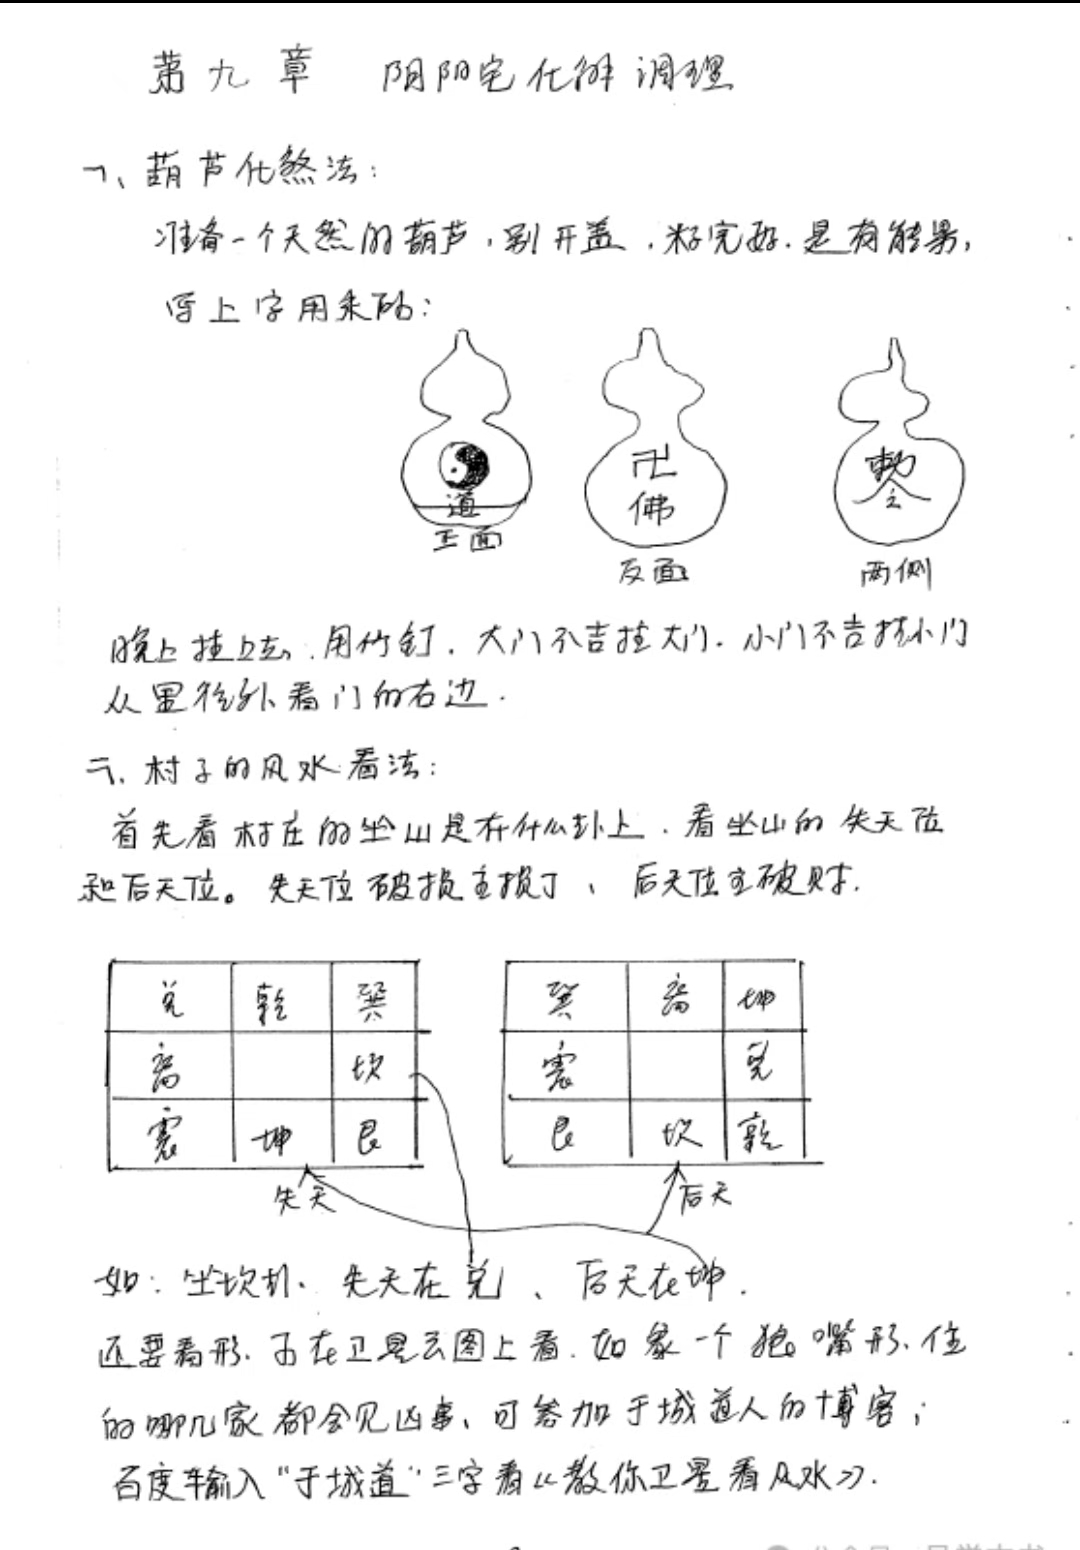 第九章 阴阳宅化解调理
一、葫芦化煞法：
准备一个天然的葫芦，别开盖，籽完好，是有能量，
写上字用朱砂：
道
正面
卍
佛
反面
敕
令
两侧
晚上挂上去，用竹钉，大门不吉挂大门，小门不吉挂小门
从里往外看门的右边．
二、村子的风水看法：
首先看村庄的坐山是在什么卦上，看坐山的先天位
和后天位。先天位破损主损丁、后天位主破财．
兑 乾 巽
离 坎
震 坤 艮
先天
巽 离 坤
震 兑
艮 坎 乾
后天
如：坐坎卦、先天在兑、后天在坤．
还要看形，可在卫星云图上看，如象一个 嘴形，住
的哪几家都会见凶事、可参加于城道人的博客；
百度输入“于城道”三字看《教你卫星看风水》．